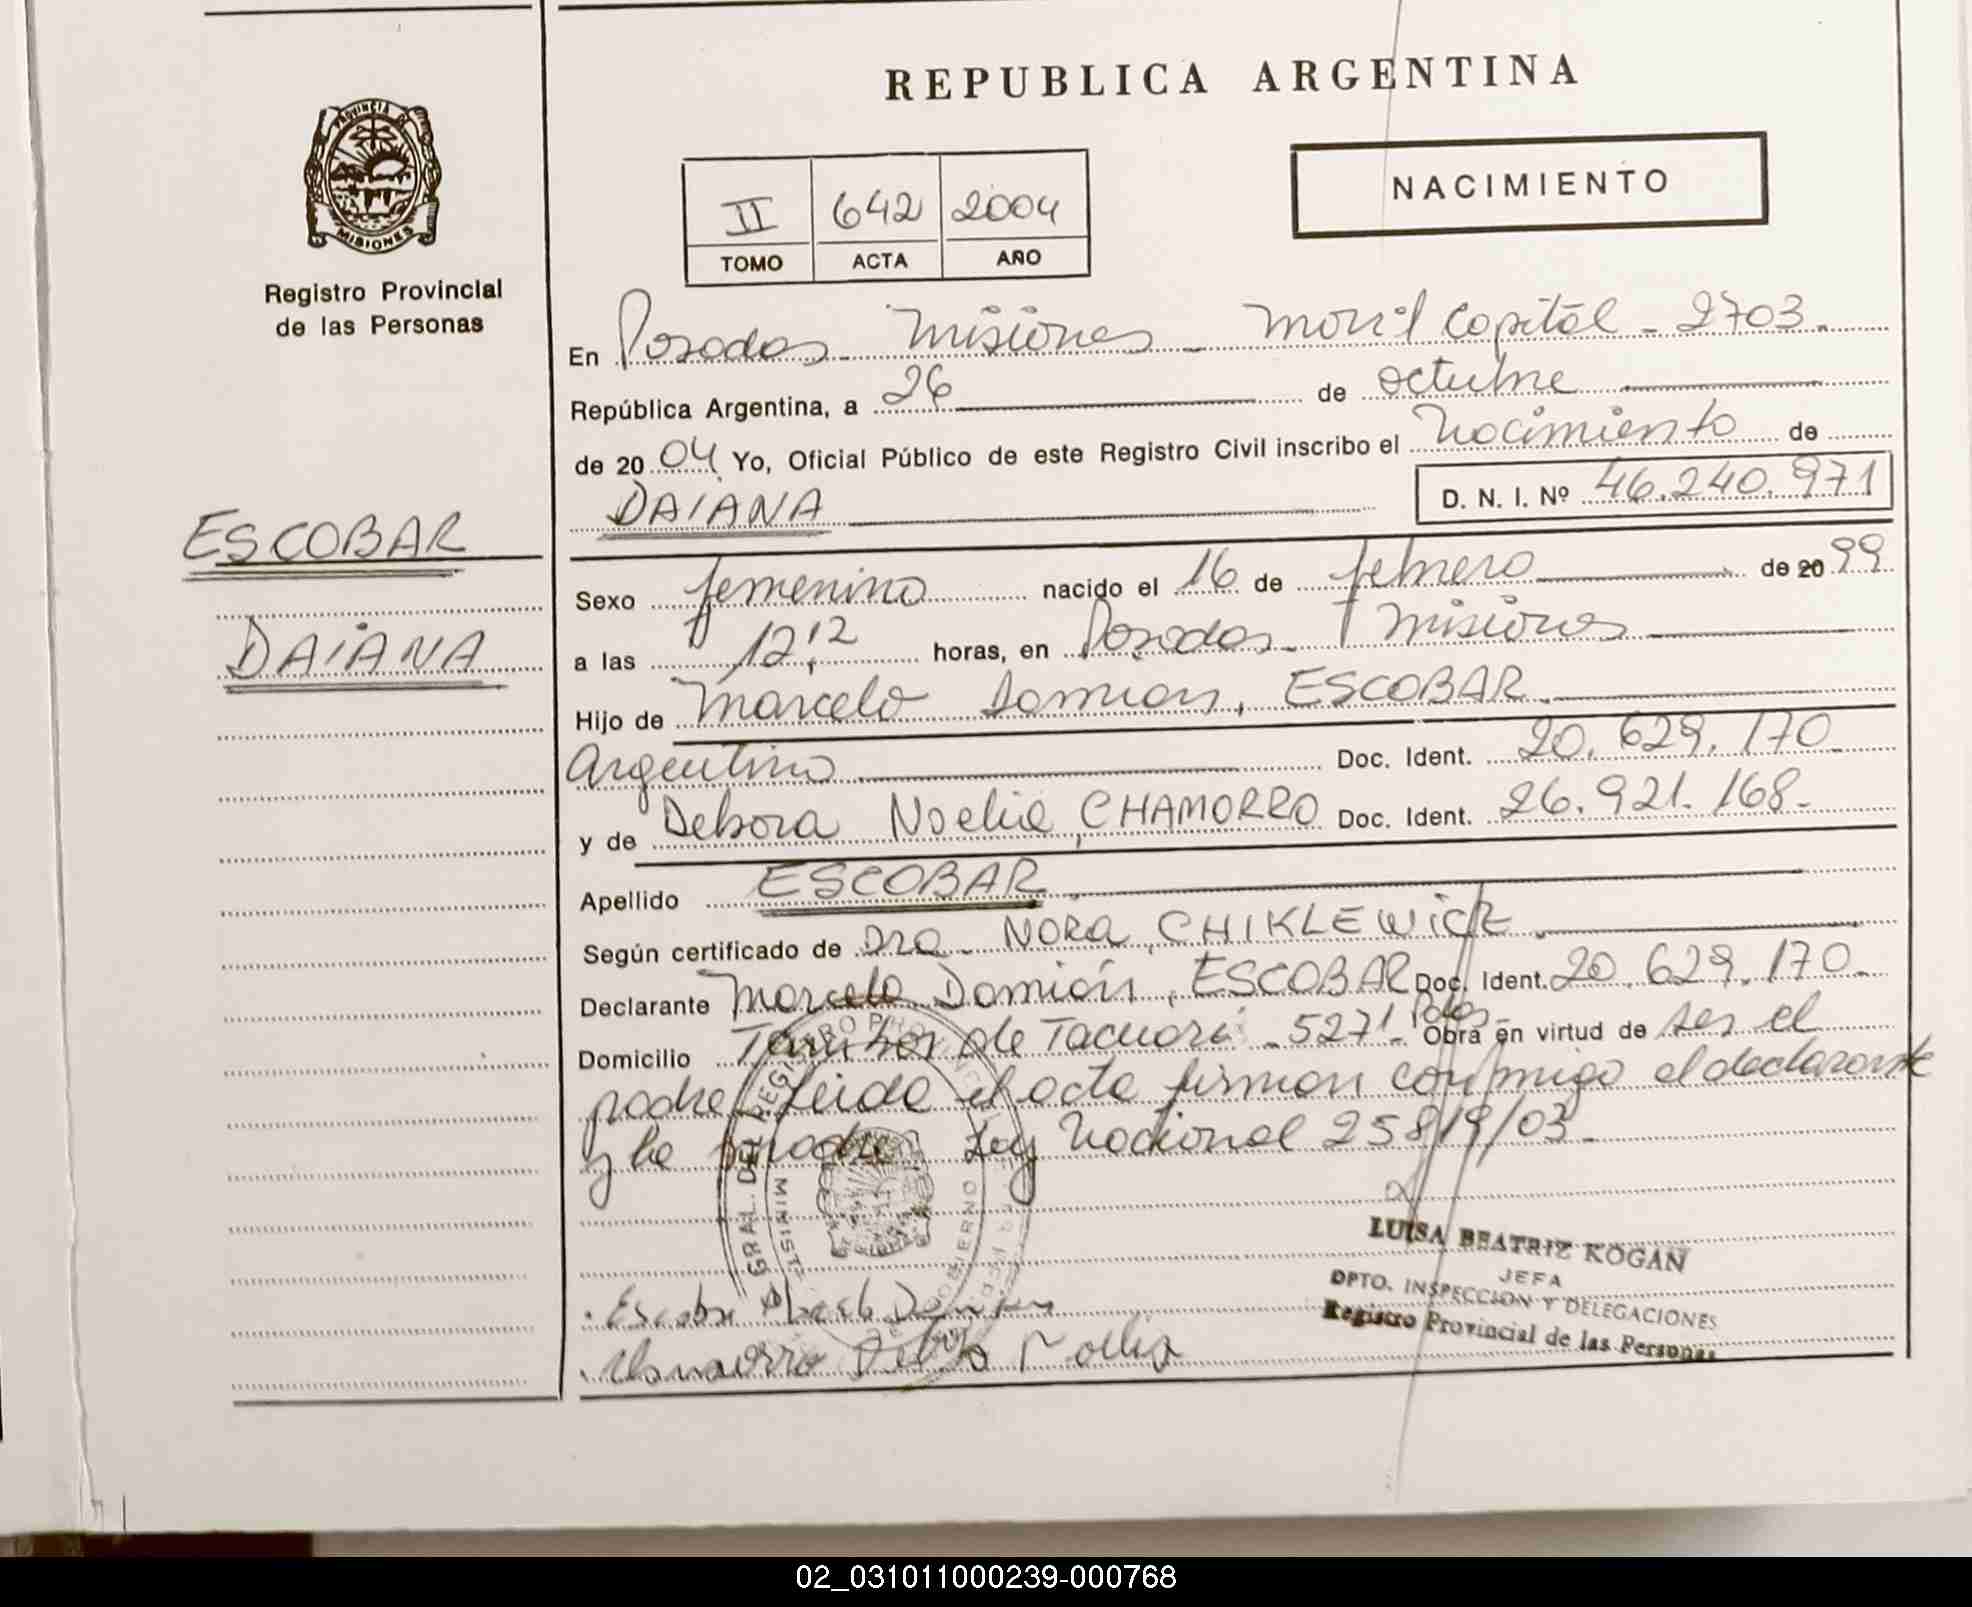 REPUBLICA ARGENTINA
PROVINCIA DE
MISIONES
Registro Provincial
de las Personas
NACIMIENTO
II 642 2004
TOMO ACTA AÑO
En Posadas - Misiones - Movil Capital - 2703 -
República Argentina, a 26 de octubre
de 2004 Yo, Oficial Público de este Registro Civil inscribo el Nacimiento de
DAIANA D. N. I. Nº 46.240.971
ESCOBAR
DAIANA
Sexo femenino nacido el 16 de febrero de 20 99
a las 12,12 horas, en Posadas - Misiones
Hijo de Marcelo Damian, ESCOBAR
Argentino Doc. Ident. 20.629.170
y de Debora Noelia, CHAMORRO Doc. Ident. 26.921.168-
Apellido ESCOBAR
Según certificado de Dra. NORA, CHIKLEWICZ
Declarante Marcelo Damián, ESCOBAR Doc. Ident. 20.629.170-
Domicilio Tambor de Tacuarí - 5271 - Pdas - Obra en virtud de ser el
padre Leida el acta firman conmigo el declarante
y la madre Ley Nacional 25819/03 -
LUISA BEATRIZ KOGAN
JEFA
DPTO. INSPECCION Y DELEGACIONES
Registro Provincial de las Personas
GRAL. DEL REGISTRO
MINIST GOBIERNO
Escobar Damian
Chamorro Noelia
02_031011000239-000768